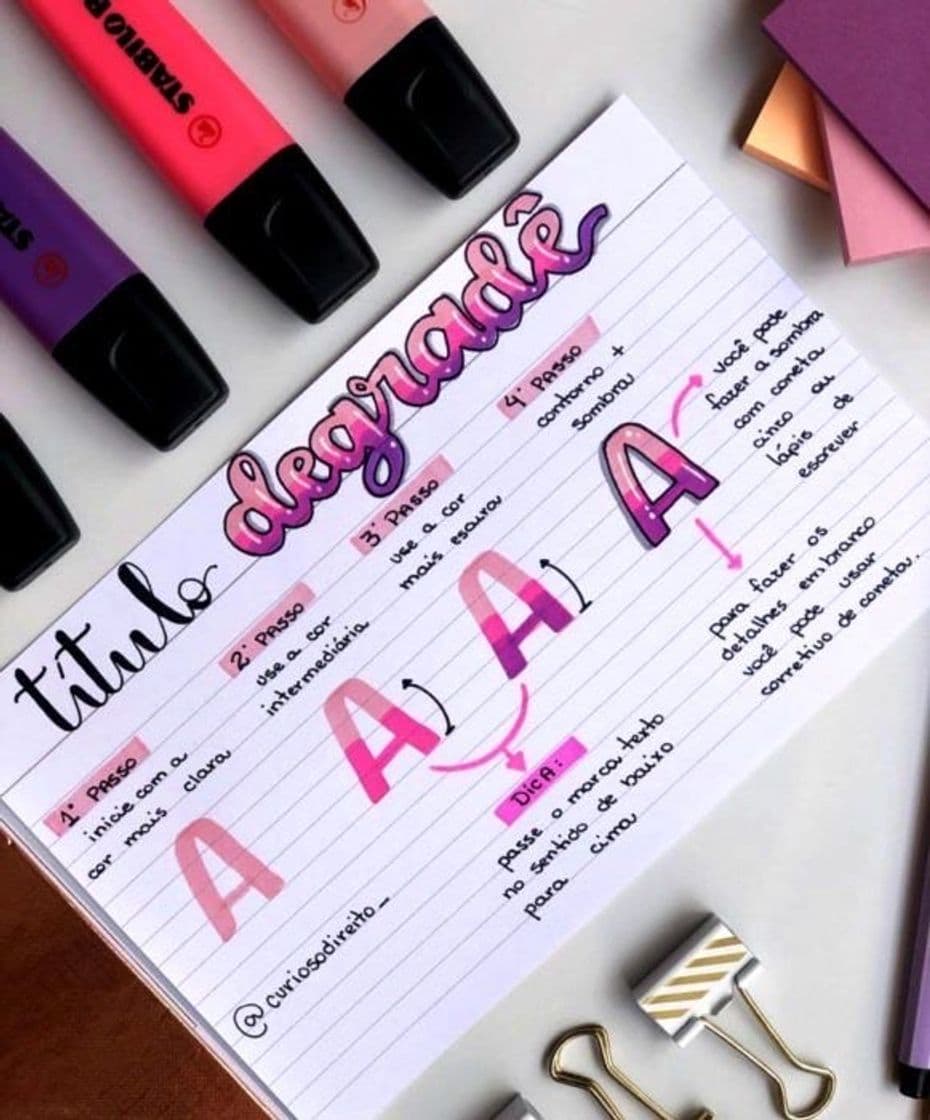 STABILO B
STABILO
STA
título degradê
1° PASSO
inicie com a
cor mais clara
A
2° PASSO
use a cor
intermediária
A
3° PASSO
use a cor
mais escura
A
4° PASSO
contorno +
sombra
A
você pode
fazer a sombra
com caneta
cinza ou
lápis de
escrever
para fazer os
detalhes em branco
você pode usar
corretivo de caneta.
DICA:
passe o marca texto
no sentido de baixo
para cima
@curiosodireito_